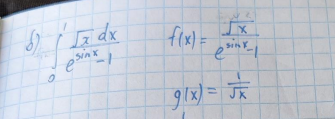 б) ∫₀¹ √x dx / (e^(sinx) - 1)
f(x) = √x / (e^(sinx) - 1)
g(x) = 1/√x